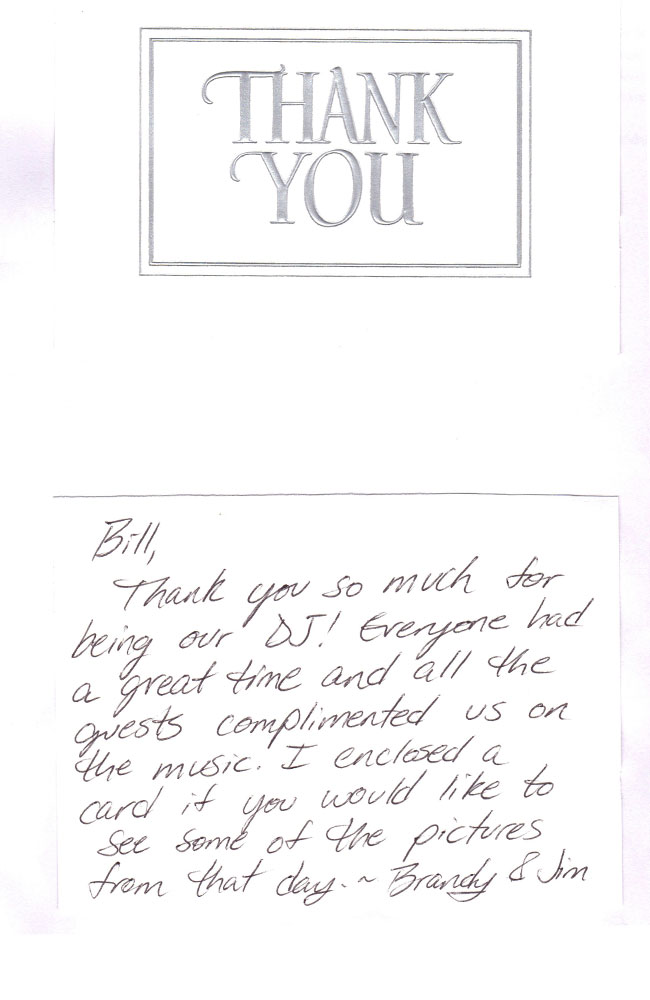 THANK
YOU
Bill,
Thank you so much for
being our DJ! Everyone had
a great time and all the
guests complimented us on
the music. I enclosed a
card if you would like to
see some of the pictures
from that day. ~ Brandy & Jim